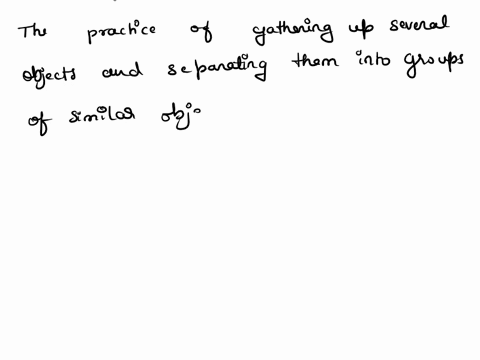 The practice of gathering up several
objects and separating them into groups
of similar obj